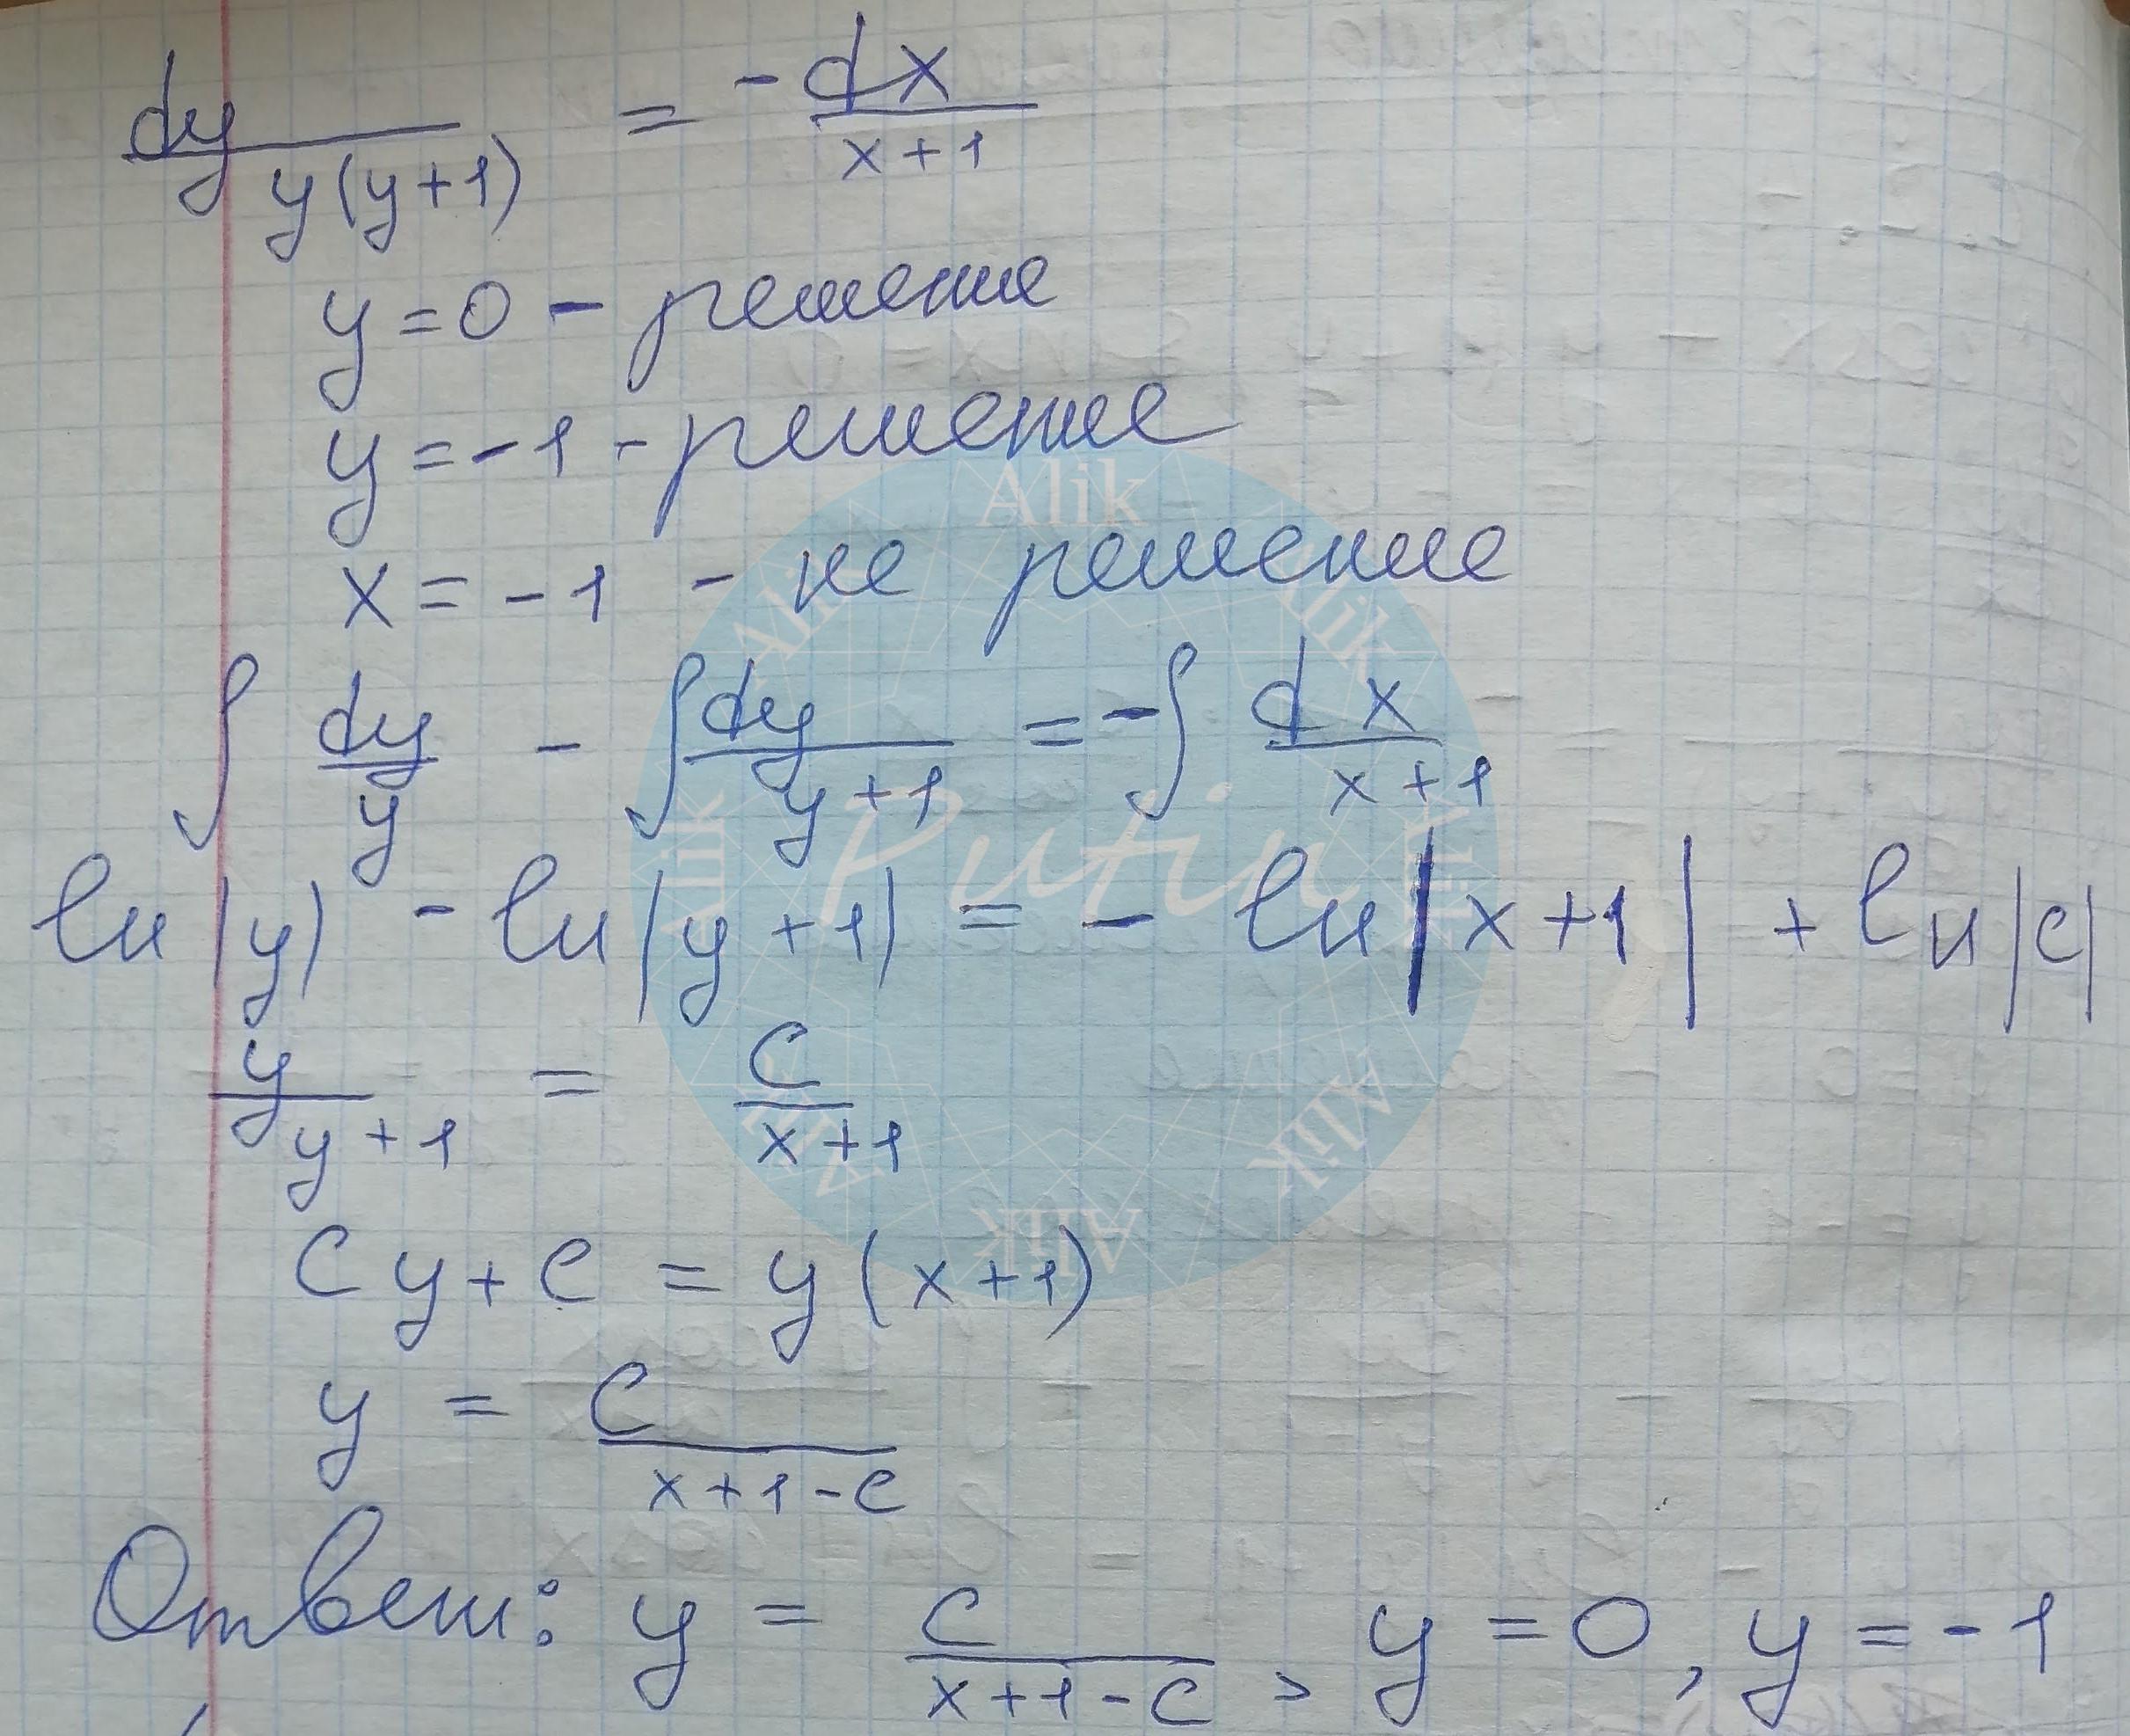 dy/y(y+1) = -dx/x+1
y=0 - решение
y=-1 - решение
x=-1 - не решение
∫ dy/y - ∫ dy/y+1 = -∫ dx/x+1
ln|y| - ln|y+1| = - ln|x+1| + ln|c|
y/y+1 = C/x+1
Cy+C = y(x+1)
y = C/x+1-C
Ответ: y = C/x+1-C, y=0, y=-1
Alik
Alik
Alik
Alik
Alik
Alik
Alik
Alik
Putin